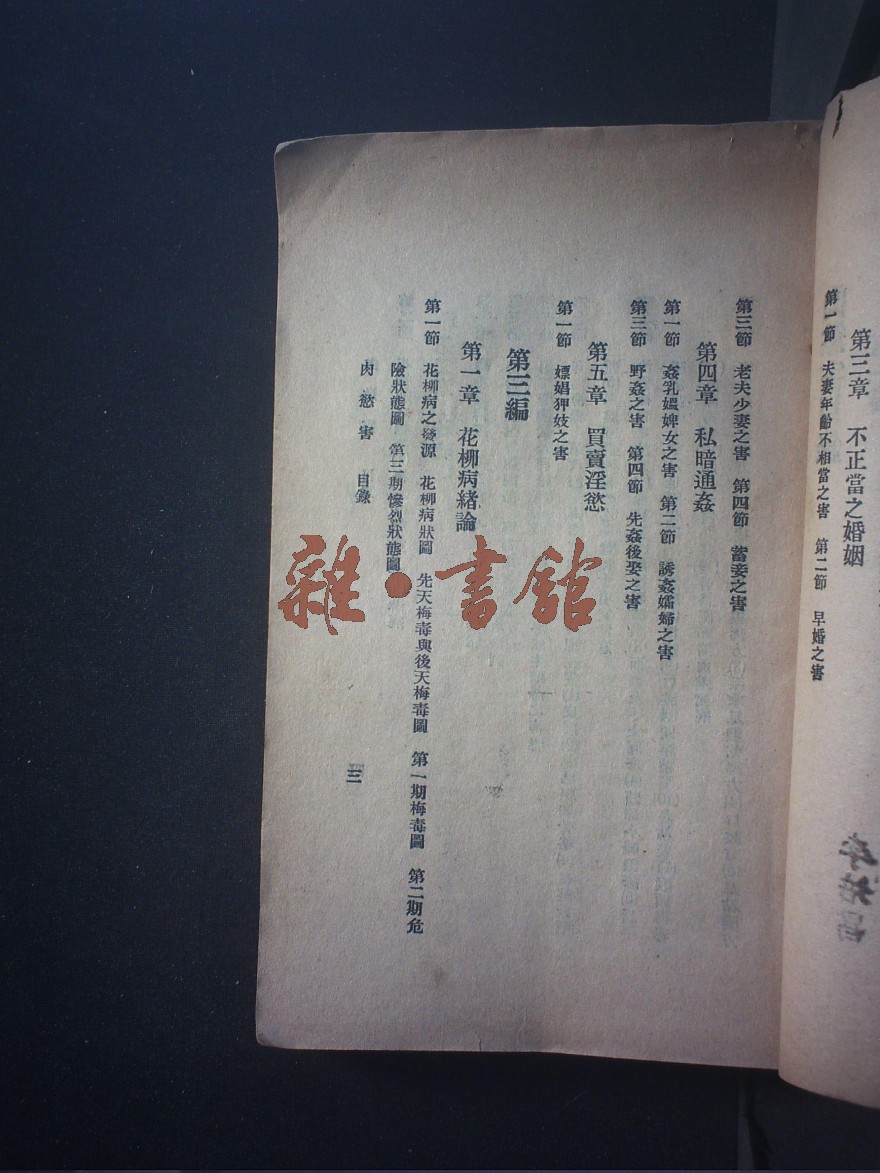 第三章　不正當之婚姻
第一節　夫妻年齡不相當之害　第二節　早婚之害
第三節　老夫少妻之害　第四節　蓄妾之害
第四章　私暗通姦
第一節　姦乳媼婢女之害　第二節　誘姦孀婦之害
第三節　野姦之害　第四節　先姦後娶之害
第五章　買賣淫慾
第一節　嫖娼狎妓之害
第三編
第一章　花柳病緒論
第一節　花柳病之發源　花柳病狀圖　先天梅毒與後天梅毒圖　第一期梅毒圖　第二期危
險狀態圖　第三期慘烈狀態圖
肉慾害　目錄　三
雜·書館